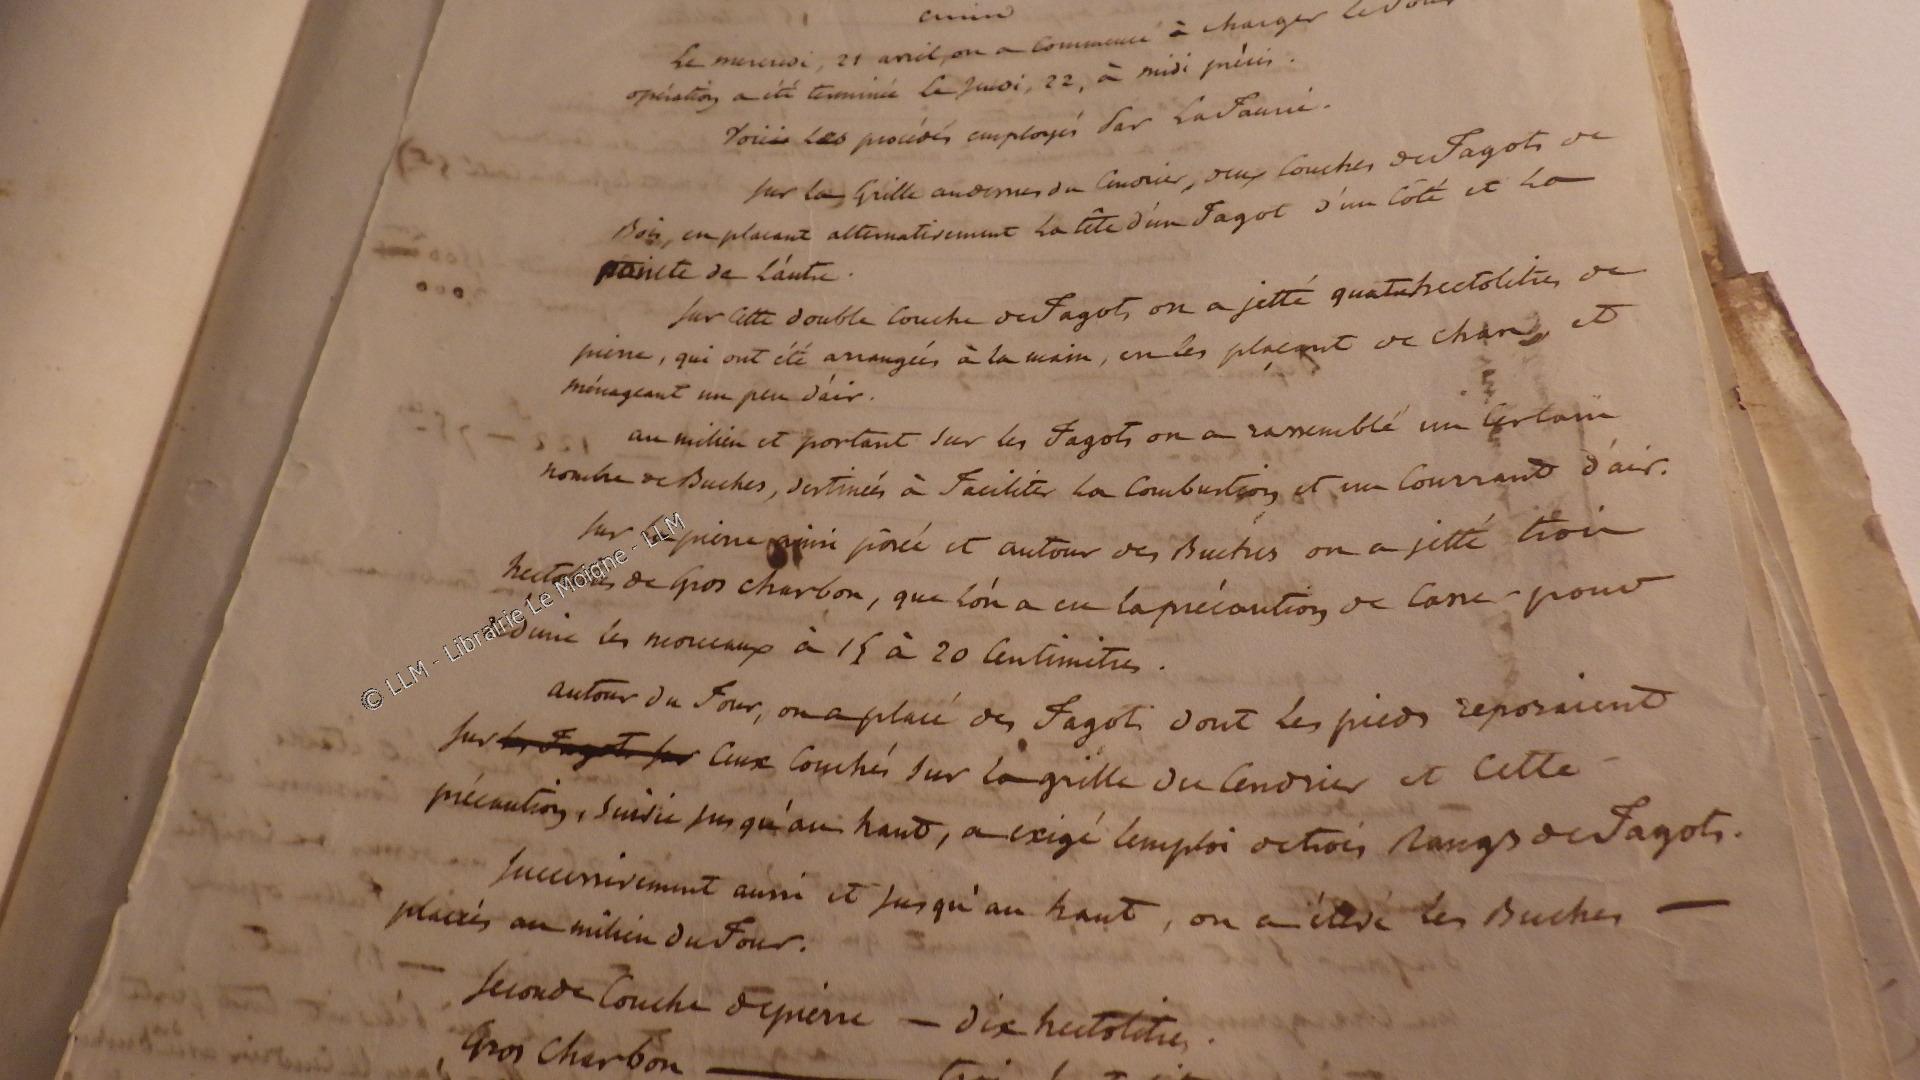 Le mercredi, 21 avril, on a commencé à charger le Four
opération a été terminée le Jeudi, 22, à midi précis.
Voici les procédés employés par LaFaurie.
Sur la Grille au dessus du Cendrier, deux Couches de Fagots de
Bois, en placant alternativement La tête d'un Fagot d'un Côté et La
pointe de L'autre.
Sur Cette double Couche de Fagots on a jetté quatre hectolitres de
pierre, qui ont été arrangées à la main, en les plaçant de champ, et
ménageant un peu d'air.
au milieu et portant sur les Fagots on a rassemblé un Certain
nombre de Buches, destinées à Faciliter La Combustion et un Courrant d'air.
Sur la pierre ainsi posée et autour des Buches on a jetté trois
hectolitres de Gros charbon, que L'on a eu la précaution de Casser pour
réduire les morceaux à 15 à 20 Centimètres.
autour du Four, on a placé des Fagots dont Les pieds reposaient
sur les Fagots sur Ceux Couchés sur La grille du Cendrier et Cette
précaution, suivie jusqu'au haut, a exigé l'emploi de trois Rangs de Fagots.
Successivement aussi et jusqu'au haut, on a élevé les Buches —
placées au milieu du Four.
Seconde Couche de pierre — dix hectolitres.
Gros Charbon —
© LLM - Librairie Le Moigne - LLM